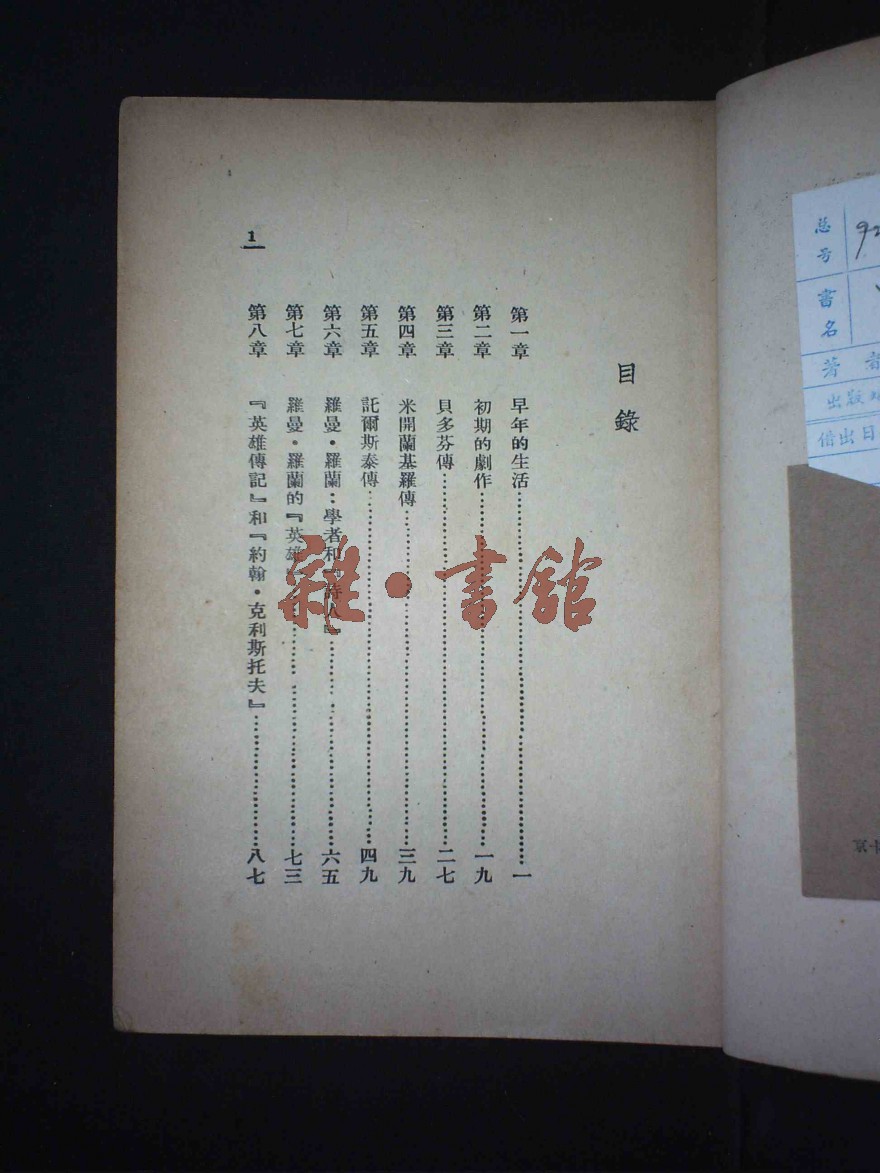 目錄
第一章 早年的生活……一
第二章 初期的劇作……一九
第三章 貝多芬傳……二七
第四章 米開蘭基羅傳……三九
第五章 託爾斯泰傳……四九
第六章 羅曼・羅蘭：學者和『詩人』……六五
第七章 羅曼・羅蘭的『英雄』……七三
第八章 『英雄傳記』和『約翰・克利斯托夫』……八七
1
雜・書館
总号
書名
著
出版
借出日